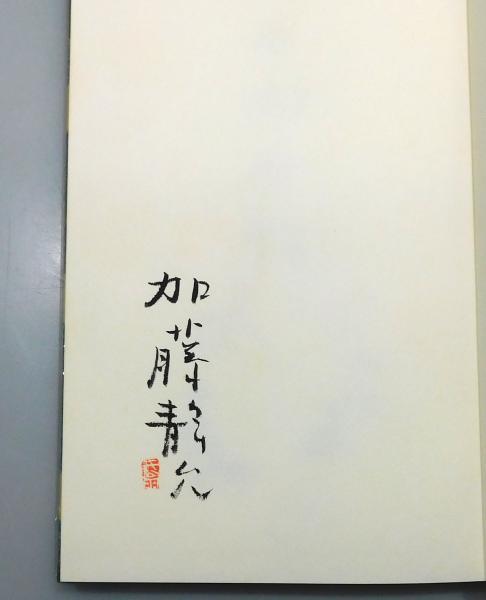 加藤静允